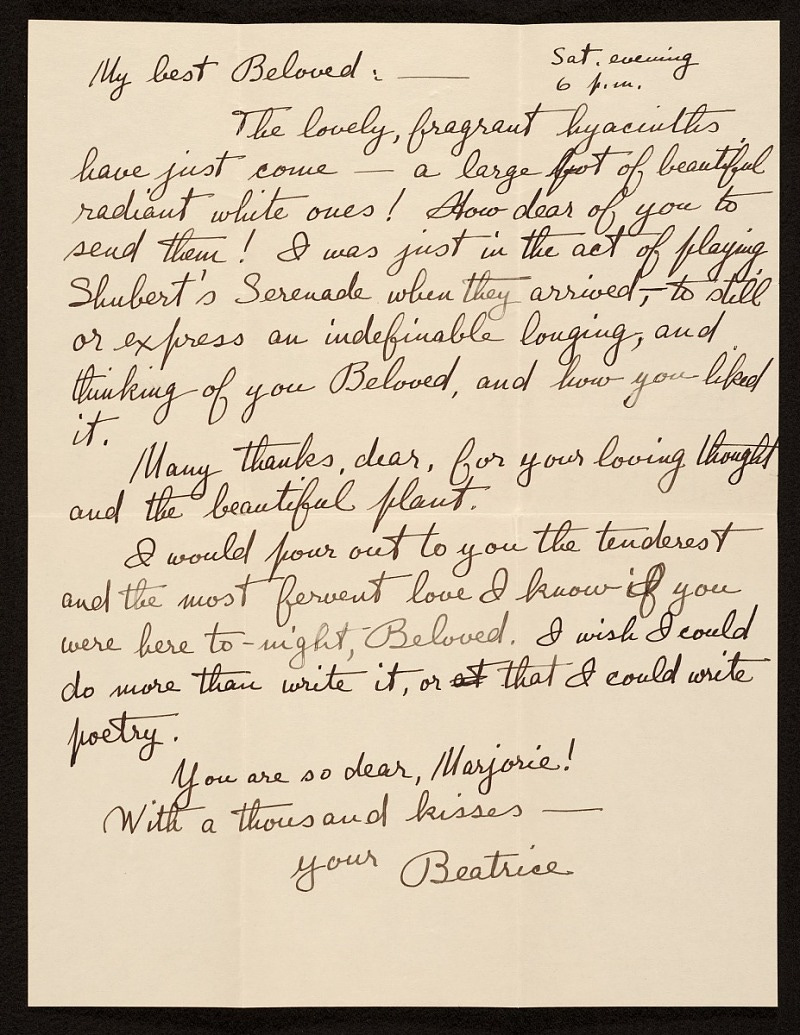 Sat. evening
6 p.m.
My best Beloved: —
The lovely, fragrant hyacinths
have just come — a large pot of beautiful
radiant white ones! How dear of you to
send them! I was just in the act of playing
Shubert's Serenade when they arrived, — to still
or express an indefinable longing, and
thinking of you Beloved, and how you liked
it.
Many thanks, dear, for your loving thought
and the beautiful plant.
I would pour out to you the tenderest
and the most fervent love I know if you
were here to-night, Beloved. I wish I could
do more than write it, or at that I could write
poetry.
You are so dear, Marjorie!
With a thousand kisses —
your Beatrice